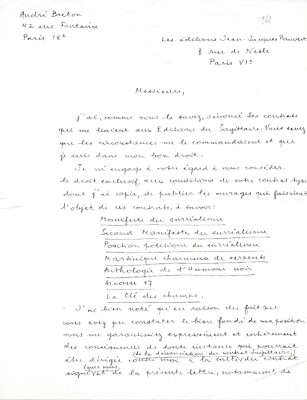 André Breton
42 rue Fontaine
Paris IXe
Les éditions Jean-Jacques Pauvert
8 rue de Nesle
Paris VIe
Messieurs,
J'ai, comme vous le savez, dénoncé les contrats
qui me liaient aux Editions du Sagittaire. Vous savez
que les circonstances me le commandaient et que
je suis dans mon bon droit.
Je m'engage à votre égard à vous concéder
le droit exclusif, aux conditions de votre contrat type
dont j'ai copie, de publier les ouvrages qui faisaient
l'objet de ces contrats, à savoir:
Manifeste du surréalisme
Second Manifeste du surréalisme
Position politique du surréalisme
Martinique charmeuse de serpents
Anthologie de l'Humour noir
Arcane 17
La Clé des champs.
J'ai bien noté qu'en raison du fait que
vous avez pu constater le bien fondé de ma position
vous me garantissez expressément et entièrement
des conséquences de toute instance qui pourrait
être dirigée contre moi à la suite
(de la dénonciation du contrat Sagittaire)
du contrat
signé et de la présente lettre, notamment de